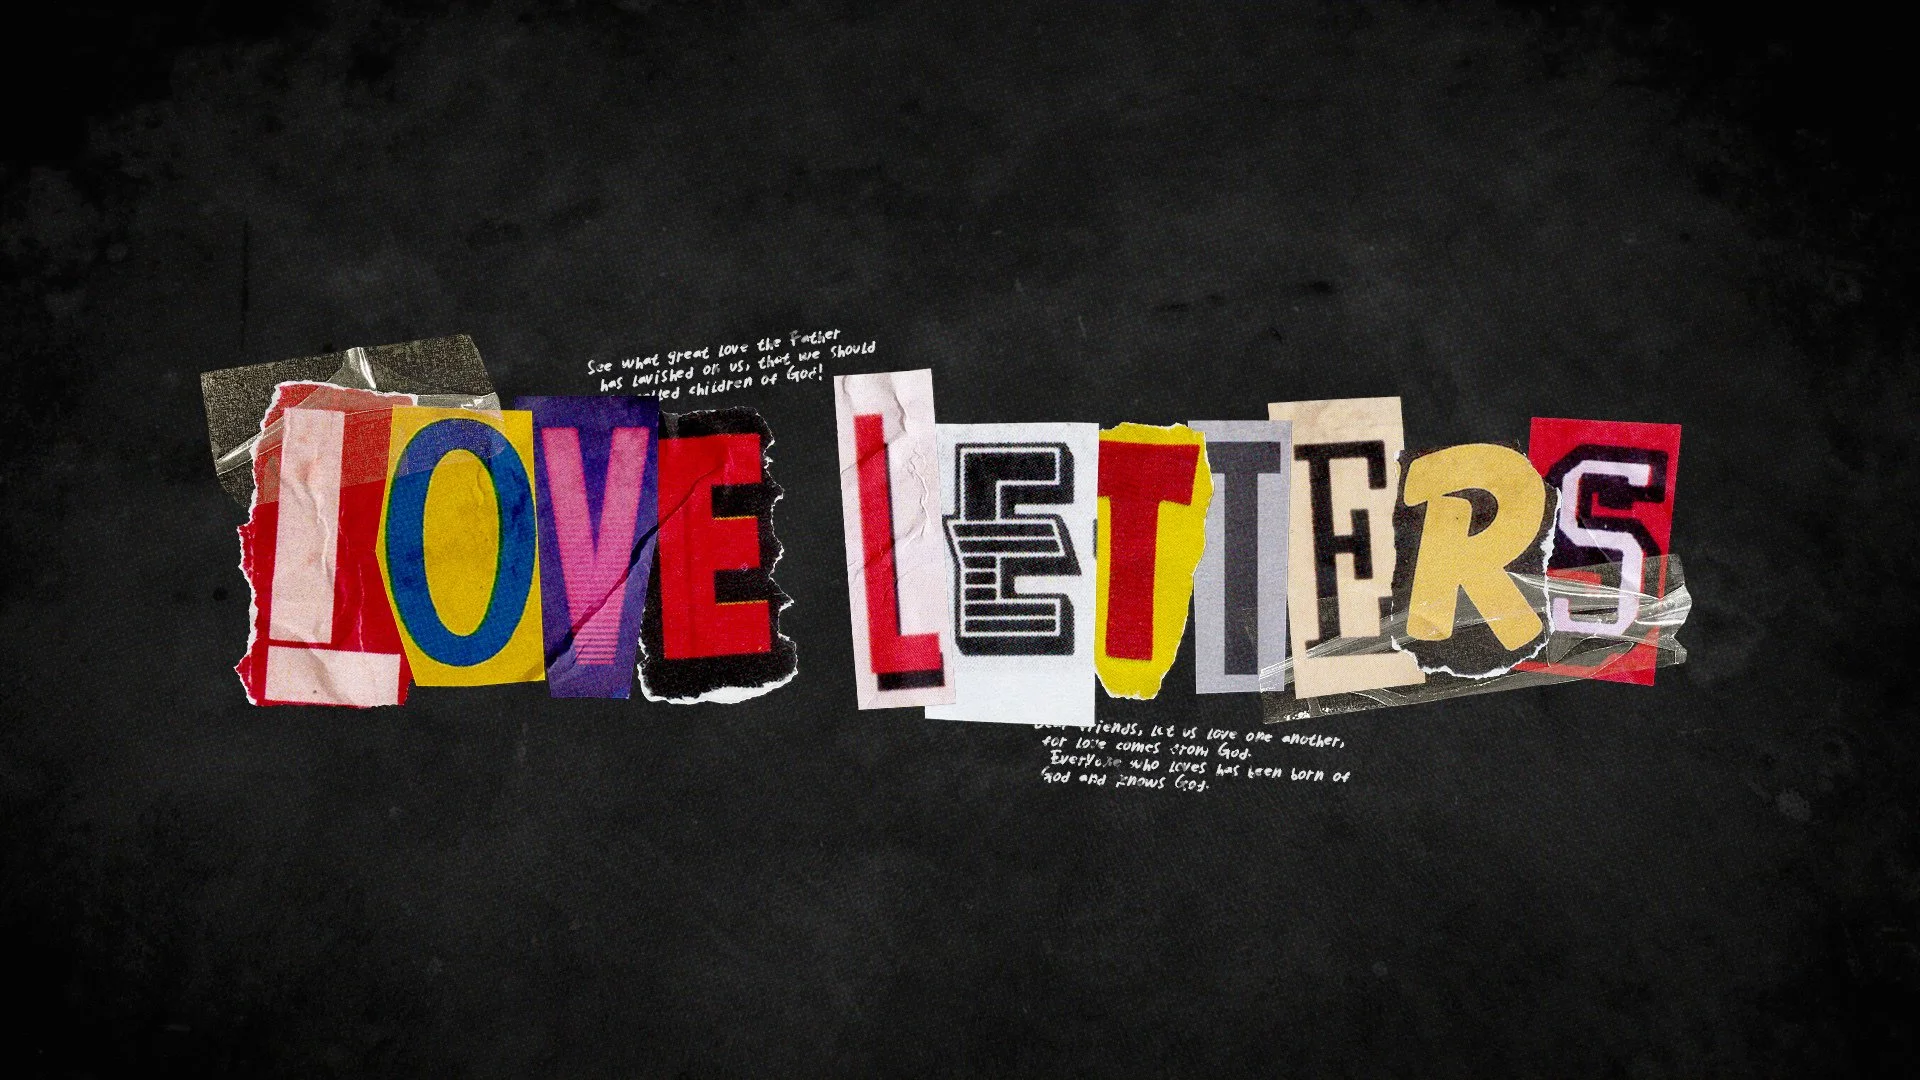 See what great love the Father
has lavished on us, that we should
children of God!
LOVE LETTERS
friends, let us love one another,
for love comes from God.
Everyone who loves has been born of
God and knows God.